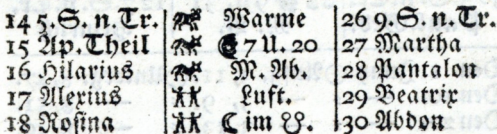 14 5. S. n. Tr. Warme 26 9. S. n. Tr.
15 Ap. Theil 7 U. 20 27 Martha
16 Hilarius M. Ab. 28 Pantalon
17 Alexius Luft. 29 Beatrix
18 Rosina ☾ im ☊. 30 Abdon